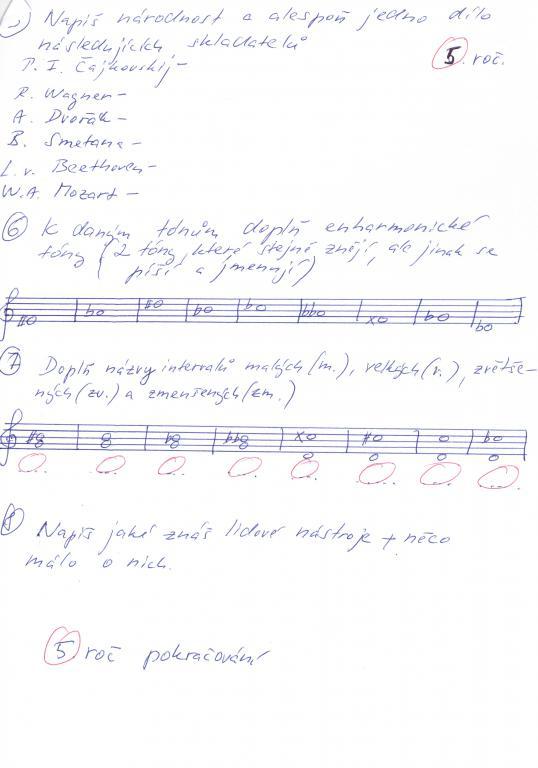 5) Napiš národnost a alespoň jedno dílo
následujících skladatelů
5. roč.
P. I. Čajkovskij -
R. Wagner -
A. Dvořák -
B. Smetana -
L. v. Beethoven -
W. A. Mozart -
6) K daným tónům doplň enharmonické
tóny (2 tóny, které stejně znějí, ale jinak se
píší a jmenují)
7) Doplň názvy intervalů malých (m.), velkých (v.), zvětše-
ných (zv.) a zmenšených (zm.)
8) Napiš jaké znáš lidové nástroje + něco
málo o nich.
5 roč pokračování